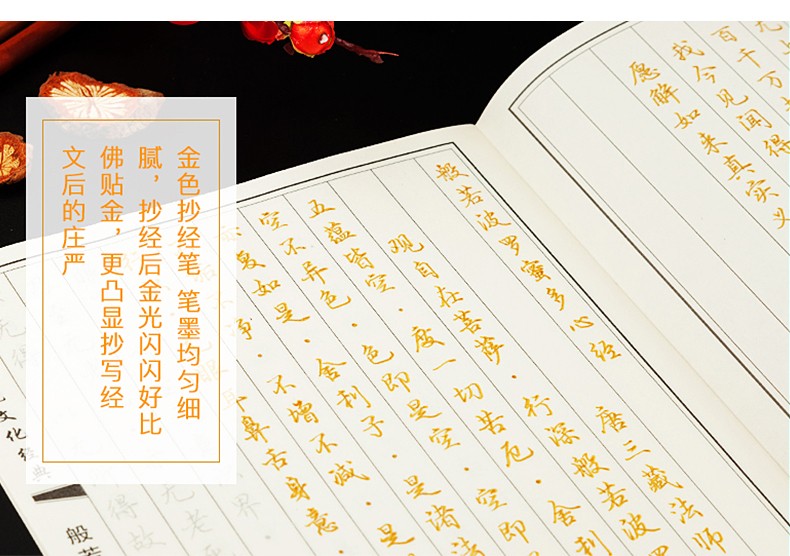 金色抄经笔 笔墨均匀细
腻，抄经后金光闪闪好比
佛贴金，更凸显抄写经
文后的庄严
无
百千万
我今见闻得
愿解如来真实义
般若波罗蜜多心经 唐三藏法师
观自在菩萨·行深般若波
五蕴皆空·度一切苦厄·舍利
空不异色·色即是空·空即
复如是·舍利子·是诸法
净·不增不减·是
鼻舌身意
界·
无老
得故
无得
文化经典
般若